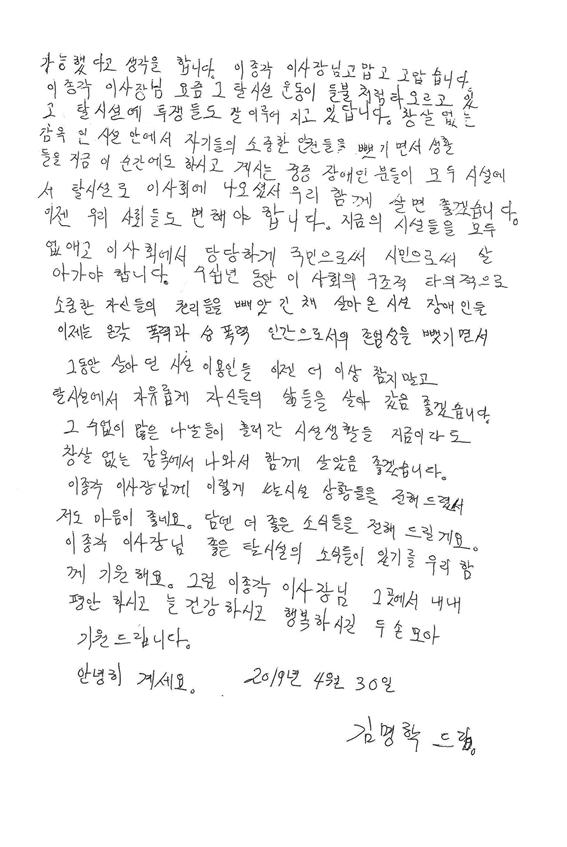 가능했다고 생각을 합니다. 이종각 이사장님고맙고 고맙습니다.
이종각 이사장님 요즘 그 탈시설 운동이 들불처럼타오르고 있
고 탈시설에 투쟁들도 잘 이루어 지고 있답니다. 창살 없는
감옥 인 시설 안에서 자기들의 소중한 인권들을 뺏기면서 생활
들을 지금 이 순간에도 하시고 계시는 중증 장애인 분들이 모두 시설에
서 탈시설로 이사회에 나오셔서 우리 함께 살면 좋겠습니다.
이젠 우리 사회들도 변해야 합니다. 지금의 시설들을 모두
없애고 이사회에서 당당하게 국민으로써 시민으로써 살
아가야 합니다. 수십년 동안 이 사회의 구조적 타의적으로
소중한 자신들의 권리들을 빼앗긴 채 살아온 시설 장애인들
이제는 온갖 폭력과 성폭력 인간으로서의 존엄성을 뺏기면서
그동안 살아 던 시설 이용인들 이젠 더 이상 참지말고
탈시설에서 자유롭게 자신들의 삶들을 살아 갔음 좋겠습니다
그 수없이 많은 나날들이 흘러간 시설생활들 지금이라도
창살 없는 감옥에서 나와서 함께 살았음 좋겠습니다.
이종각 이사장님께 이렇게 탈시설 상황들을 전해드려서
저도 마음이 좋네요. 담엔 더 좋은 소식들을 전해 드릴게요.
이종각 이사장님 좋은 탈시설의 소식들이 있기를 우리 함
께 기원해요. 그럼 이종각 이사장님 그곳에서 내내
평안 하시고 늘 건강하시고 행복하시길 두손모아
기원드립니다.
안녕히 계세요. 2019년 4월 30일
김명학 드림.